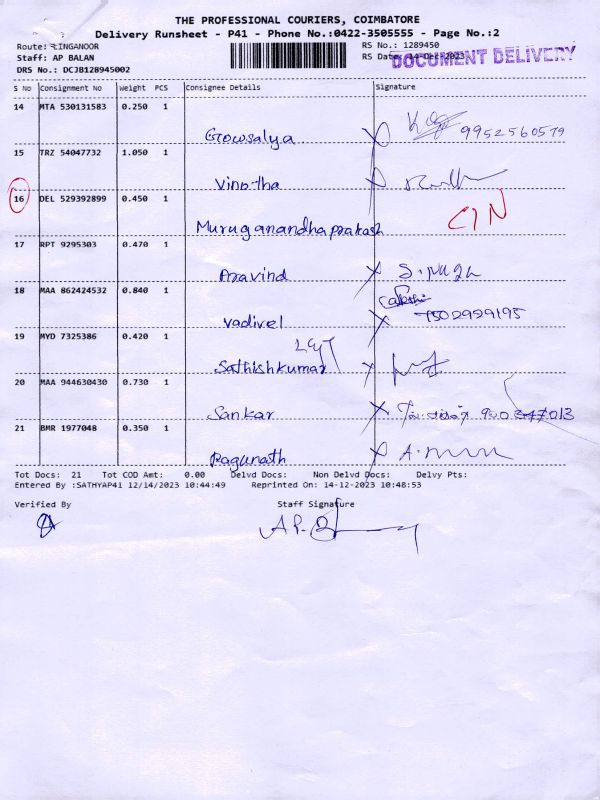 THE PROFESSIONAL COURIERS, COIMBATORE
Delivery Runsheet - P41 - Phone No.:0422-3505555 - Page No.:2
Route: RINGANOOR
RS No.: 1289450
Staff: AP BALAN
RS Date: 14-Dec-2023
DOCUMENT DELIVERY
DRS No.: DCJB128945002
S No Consignment No Weight PCS Consignee Details Signature
14 MTA 530131583 0.250 1
Gowsalya 9952560579
15 TRZ 54047732 1.050 1
Vinotha
16 DEL 529392899 0.450 1
Muruganandhaprakash C/N
17 RPT 9295303 0.470 1
Aravind
18 MAA 862424532 0.840 1
Vadivel 7502929195
19 MYD 7325386 0.420 1
Sathishkumar
20 MAA 944630430 0.730 1
Sankar
21 BMR 1977048 0.350 1
Ragunath
Tot Docs: 21 Tot COD Amt: 0.00 Delvd Docs: Non Delvd Docs: Delvy Pts:
Entered By :SATHYAP41 12/14/2023 10:44:49 Reprinted On: 14-12-2023 10:48:53
Verified By Staff Signature